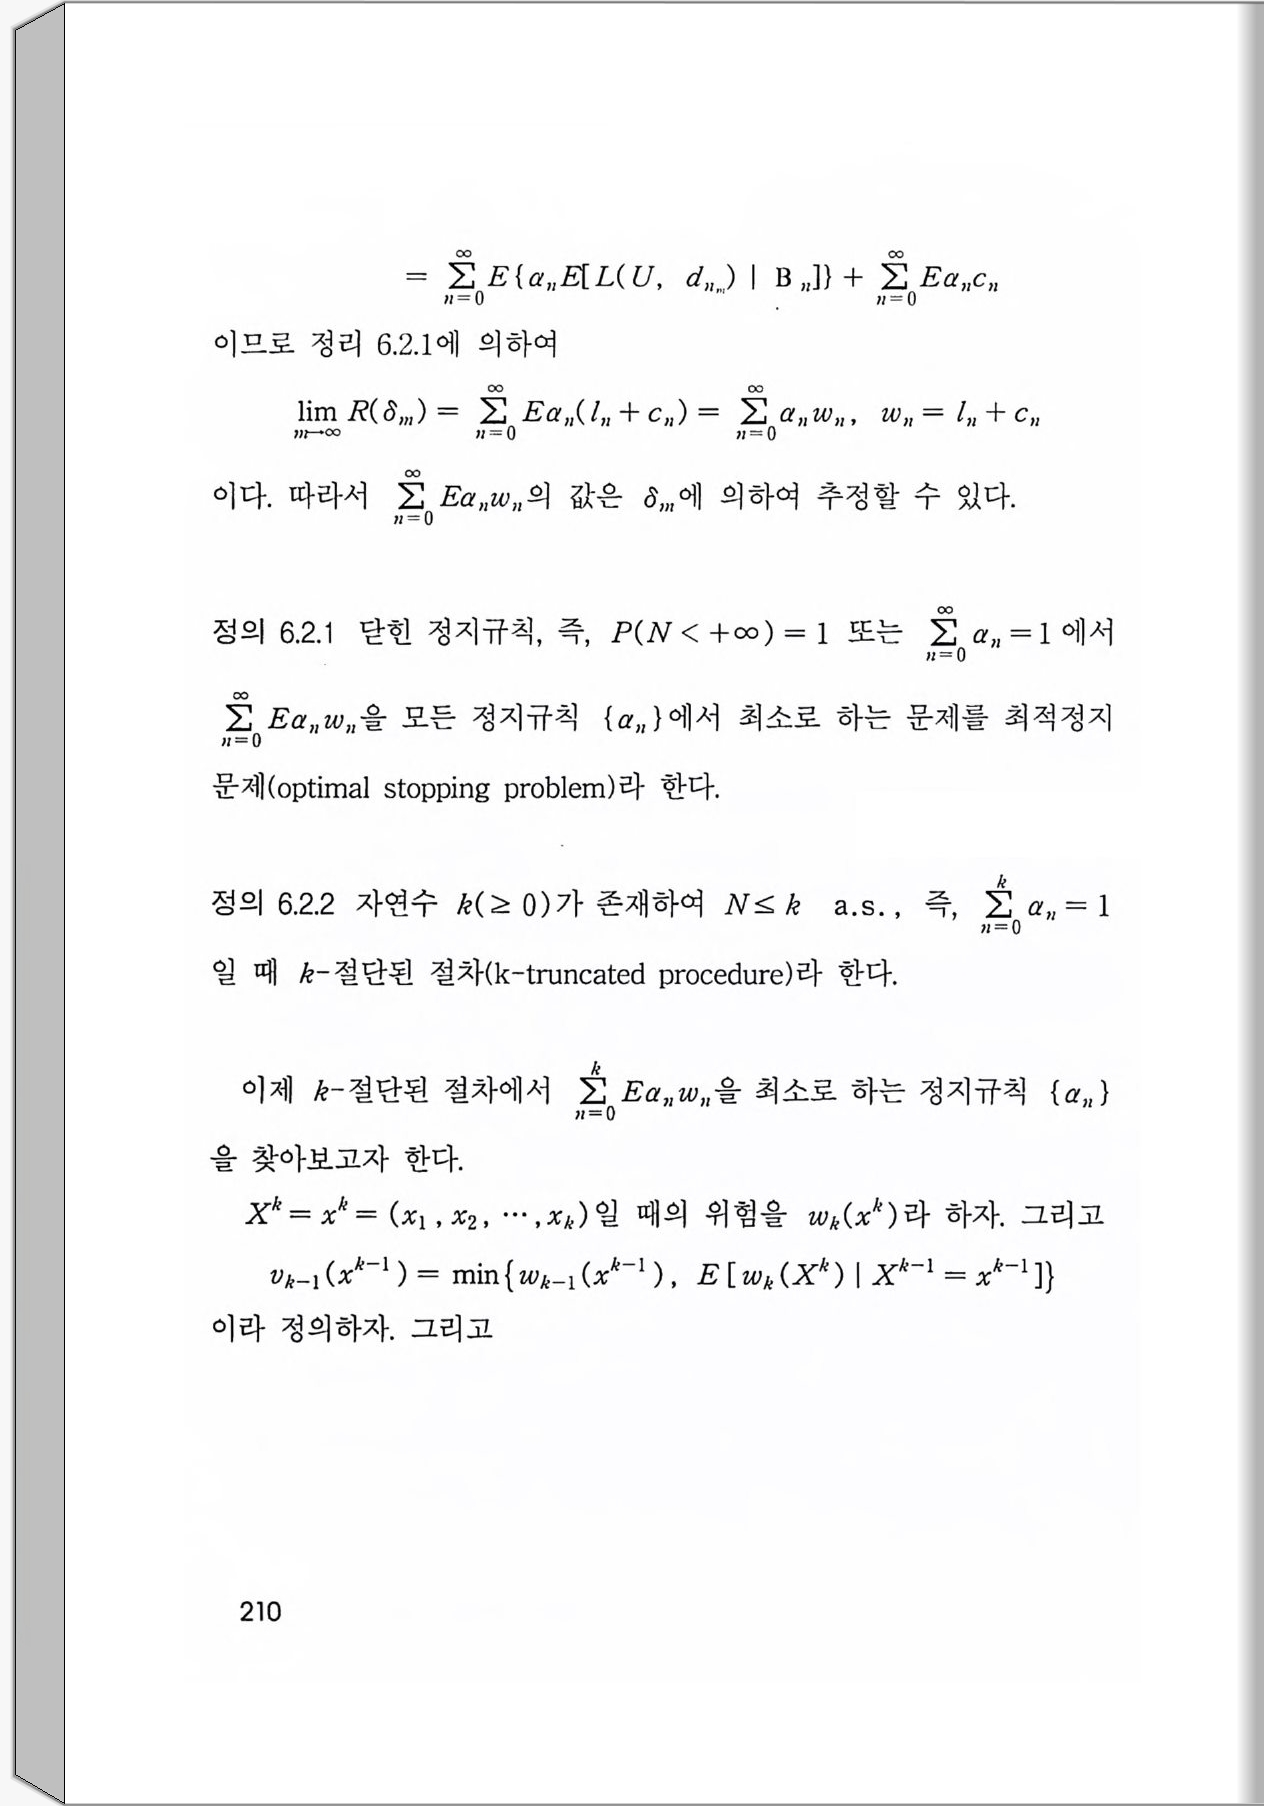 = ∑_{n=0}^{∞} E{α_n E[L(U, d_{n_m}) | B_n]} + ∑_{n=0}^{∞} Eα_n c_n
이므로 정리 6.2.1에 의하여
lim_{m→∞} R(δ_m) = ∑_{n=0}^{∞} Eα_n(l_n + c_n) = ∑_{n=0}^{∞} α_n w_n, w_n = l_n + c_n
이다. 따라서 ∑_{n=0}^{∞} Eα_n w_n의 값은 δ_m에 의하여 추정할 수 있다.
정의 6.2.1 닫힌 정지규칙, 즉, P(N < +∞) = 1 또는 ∑_{n=0}^{∞} α_n = 1 에서
∑_{n=0}^{∞} Eα_n w_n을 모든 정지규칙 {α_n}에서 최소로 하는 문제를 최적정지
문제(optimal stopping problem)라 한다.
정의 6.2.2 자연수 k(≥ 0)가 존재하여 N ≤ k a.s., 즉, ∑_{n=0}^{k} α_n = 1
일 때 k-절단된 절차(k-truncated procedure)라 한다.
이제 k-절단된 절차에서 ∑_{n=0}^{k} Eα_n w_n을 최소로 하는 정지규칙 {α_n}
을 찾아보고자 한다.
X^k = x^k = (x_1, x_2, ⋯, x_k)일 때의 위험을 w_k(x^k)라 하자. 그리고
v_{k-1}(x^{k-1}) = min{w_{k-1}(x^{k-1}), E[w_k(X^k) | X^{k-1} = x^{k-1}]}
이라 정의하자. 그리고
210